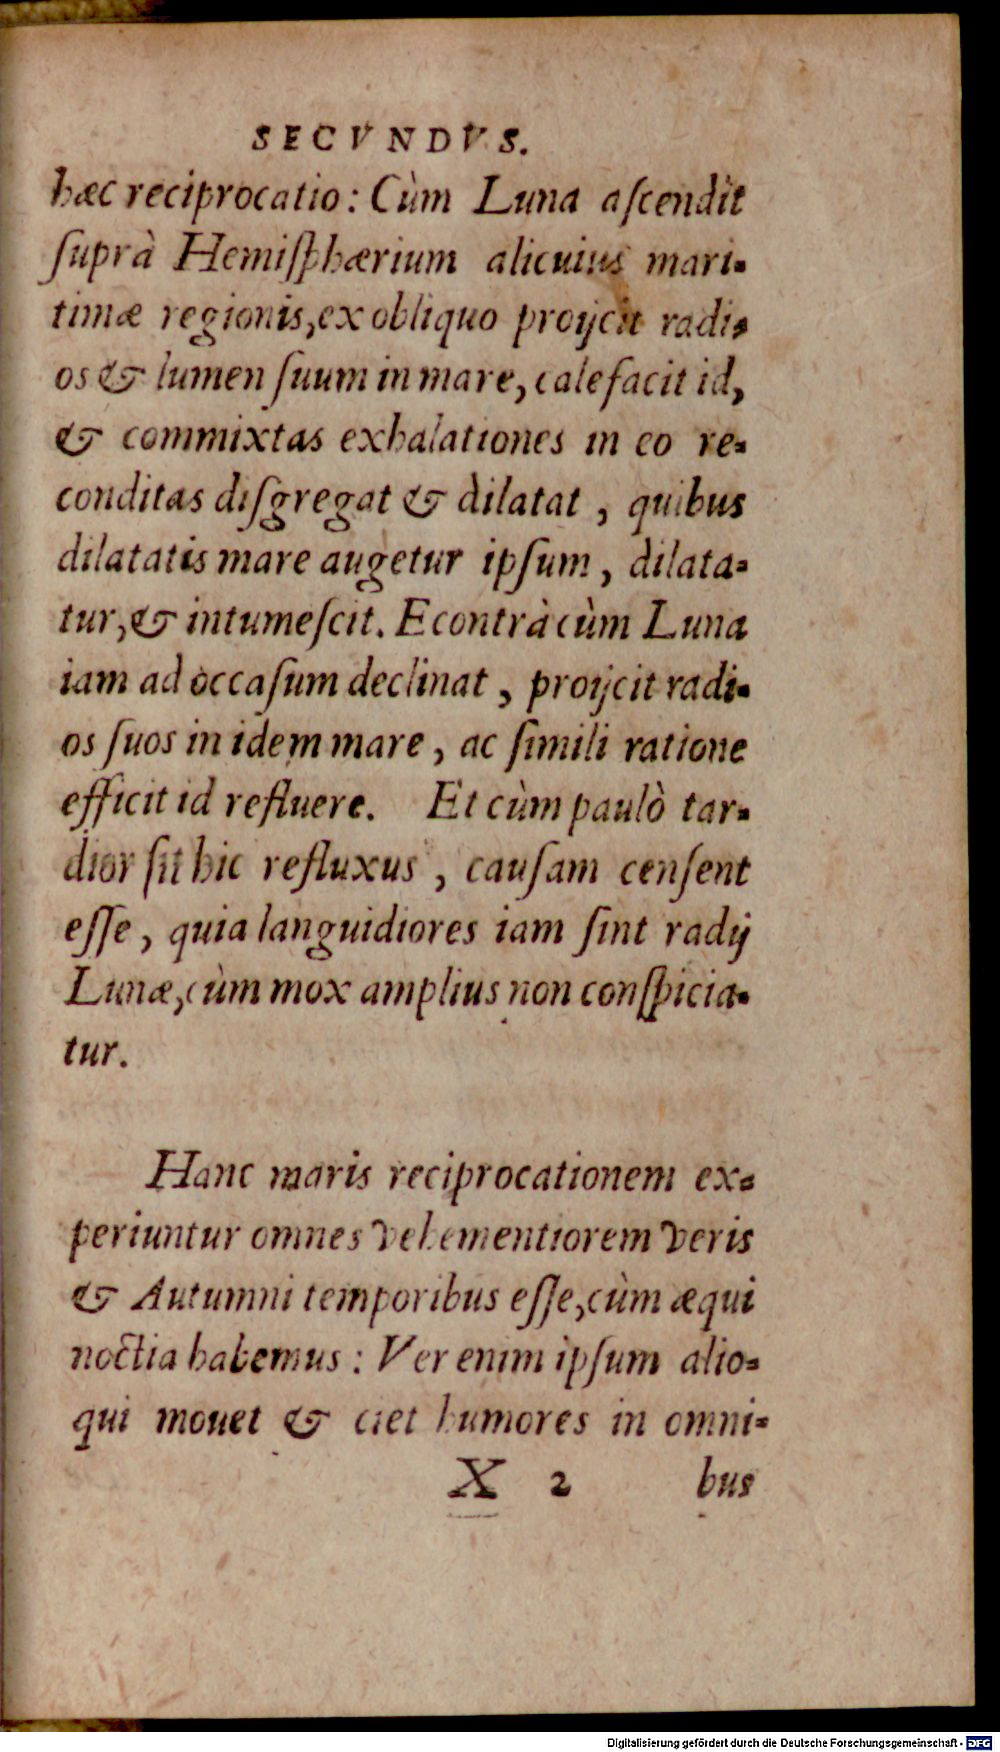 SECVNDVS.
hæc reciprocatio: Cùm Luna aſcendit
ſuprà Hemiſphærium alicuius mari-
timæ regionis, ex obliquo proijcit radi-
os & lumen ſuum in mare, calefacit id,
& commixtas exhalationes in eo re-
conditas diſgregat & dilatat, quibus
dilatatis mare augetur ipſum, dilata-
tur, & intumeſcit. Econtrà cùm Luna
iam ad occaſum declinat, proijcit radi-
os ſuos in idem mare, ac ſimili ratione
efficit id refluere. Et cùm paulò tar-
dior ſit hic refluxus, cauſam cenſent
eſſe, quia languidiores iam ſint radij
Lunæ, cùm mox amplius non conſpicia-
tur.
Hanc maris reciprocationem ex-
periuntur omnes vehementiorem veris
& Autumni temporibus eſſe, cùm æqui
noctia habemus: Ver enim ipſum alio-
qui mouet & ciet humores in omni-
X 2 bus
Digitalisierung gefördert durch die Deutsche Forschungsgemeinschaft - DFG